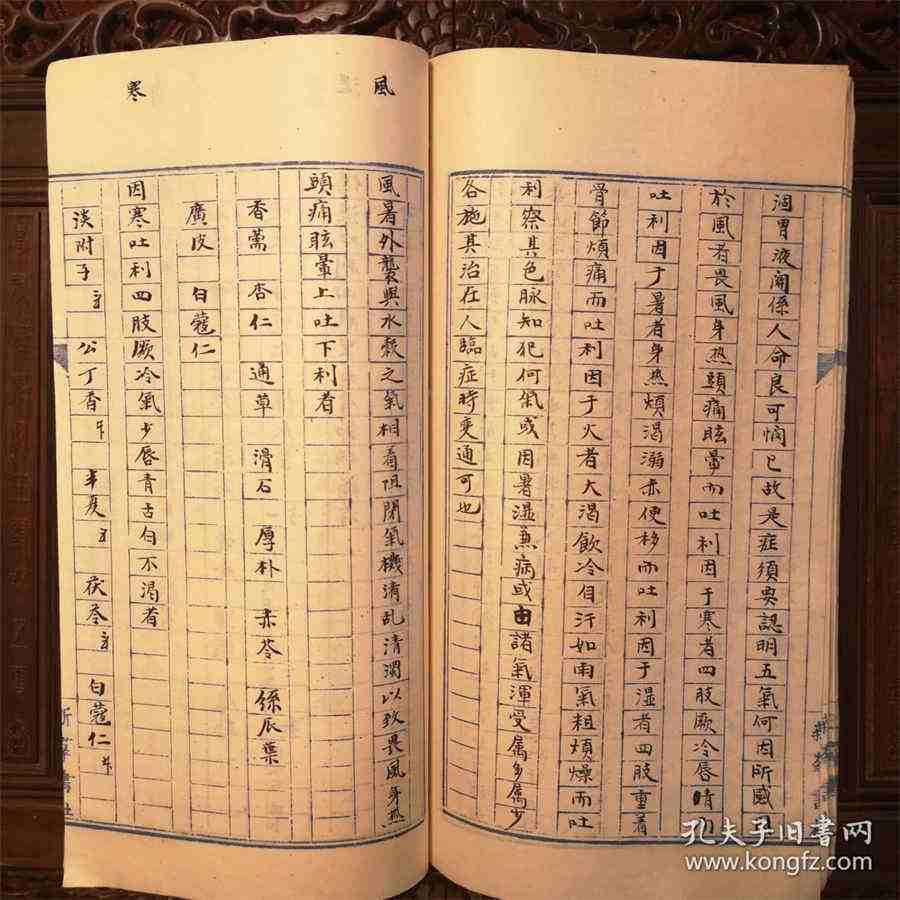 涸胃液關係人命良可憫已故是症須要認明五氣何因所感
於風者畏風身热頭痛眩暈而吐利因于寒者四肢厥冷唇
吐利因于暑者身热煩渴溺赤便秘而吐利因于湿者四肢重着
骨節煩痛而吐利因于火者大渴飲冷自汗如雨氣粗煩燥而吐
利察其色脉知犯何氣或因暑湿兼病或由諸氣渾受属多属少
各施其治在人臨症時变通可也
風
風暑外襲與水穀之氣相着阻閉氣機清乱清濁以致畏風身热
頭痛眩暈上吐下利者
香薷 杏仁 通草 滑石 厚朴 赤苓 絲瓜葉
廣皮 白蔻仁
寒
因寒吐利四肢厥冷氣少唇青舌白不渴者
淡附子 公丁香 半夏 茯苓 白蔻仁
孔夫子旧書网
www.kongfz.com